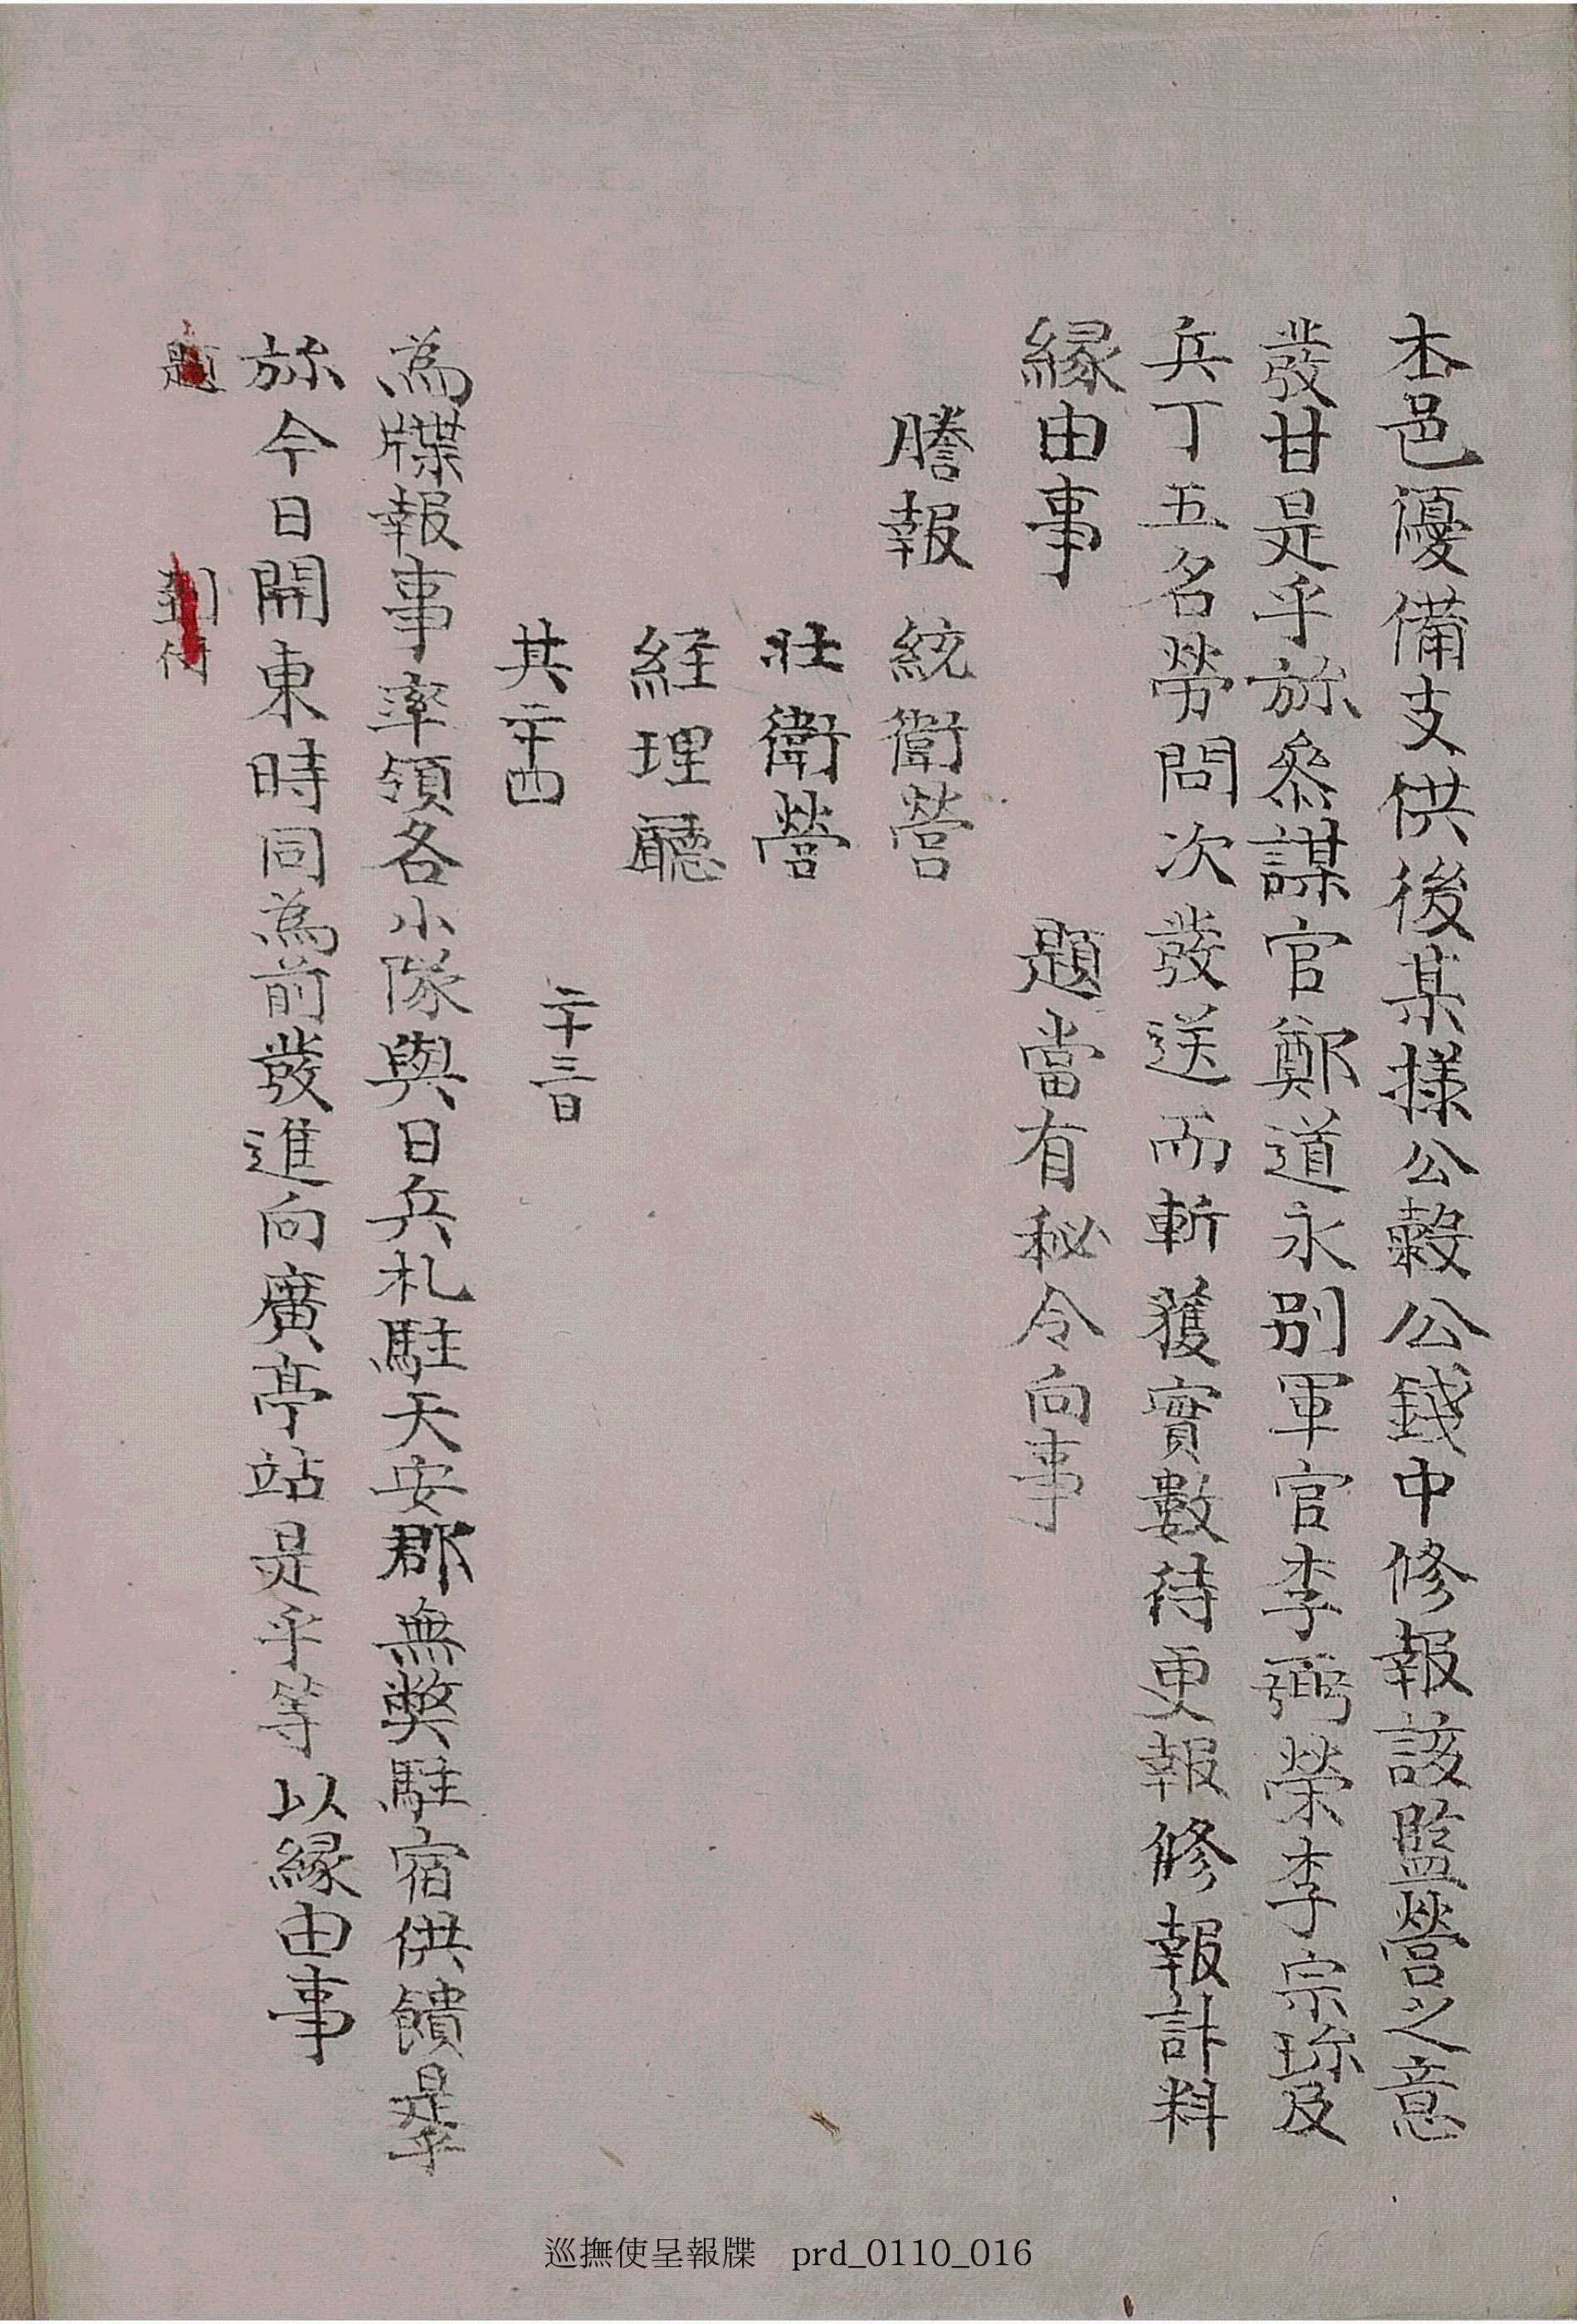 本邑優備支供後某樣公穀公錢中修報該監營之意
發甘是乎旀叅謀官鄭道永別軍官李弼榮李宗珎及
兵丁五名勞問次發送而斬獲實數待更報修報計料
緣由事　題當有秘令向事
謄報　統衛營
壯衛營
経理廳
其二十四　二十三日
為牒報事率領各小隊與日兵札駐天安郡無獘駐宿供饋是乎
旀今日開東時同為前發進向廣亭站是乎等以緣由事
題　到付
巡撫使呈報牒 prd_0110_016